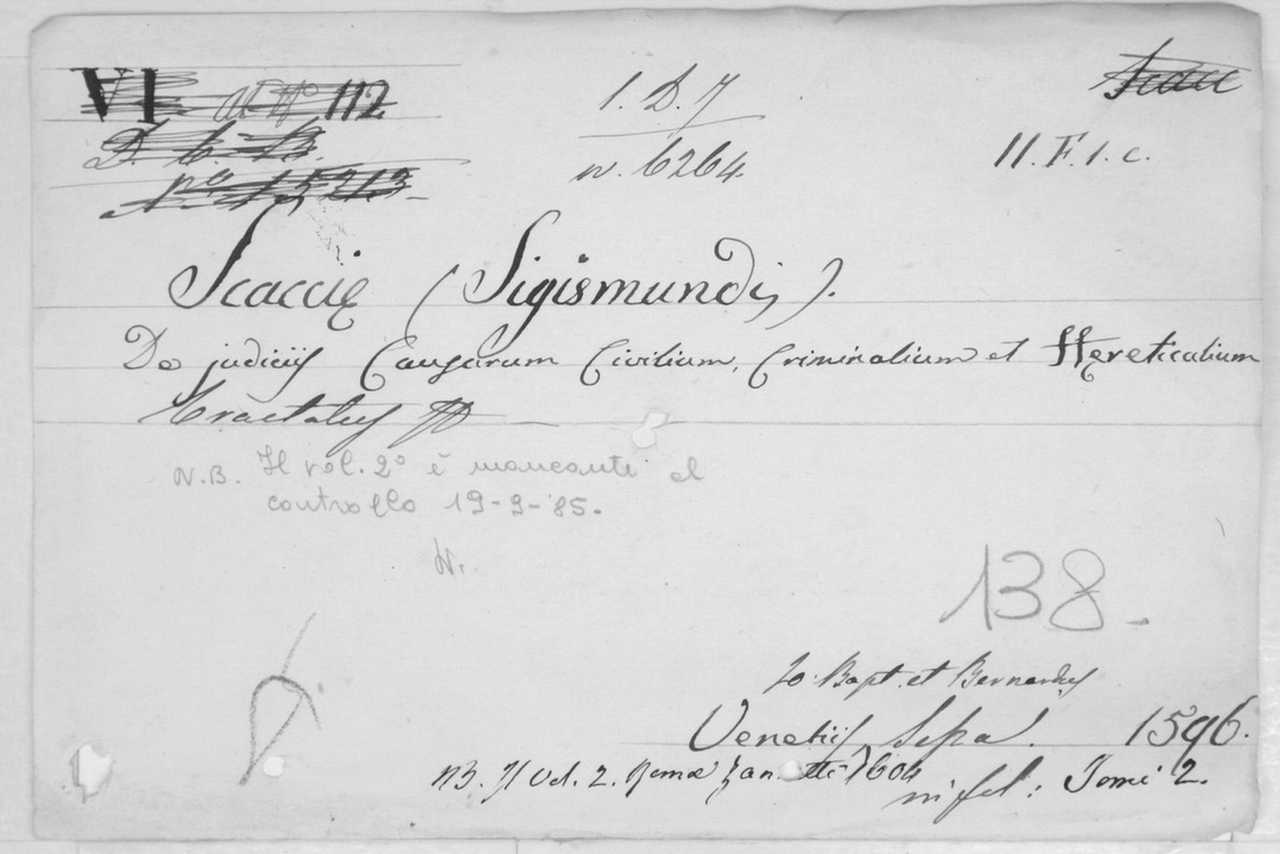 VI al N° 112
1. D. 7
n. 6264
11. F. 1. c.
Scaccię (Sigismundi).
De judiciis Causarum Civilium, Criminalium et Hęreticalium
tractatus
N.B. Il vol. 2° è mancante al
controllo 19-9-'85.
138.
Io: Bapt. et Bernardus
Venetiis, Sessa. 1596.
NB. Il Vol. 2. Romæ Zannetti 1604
in fol: Tomi 2.